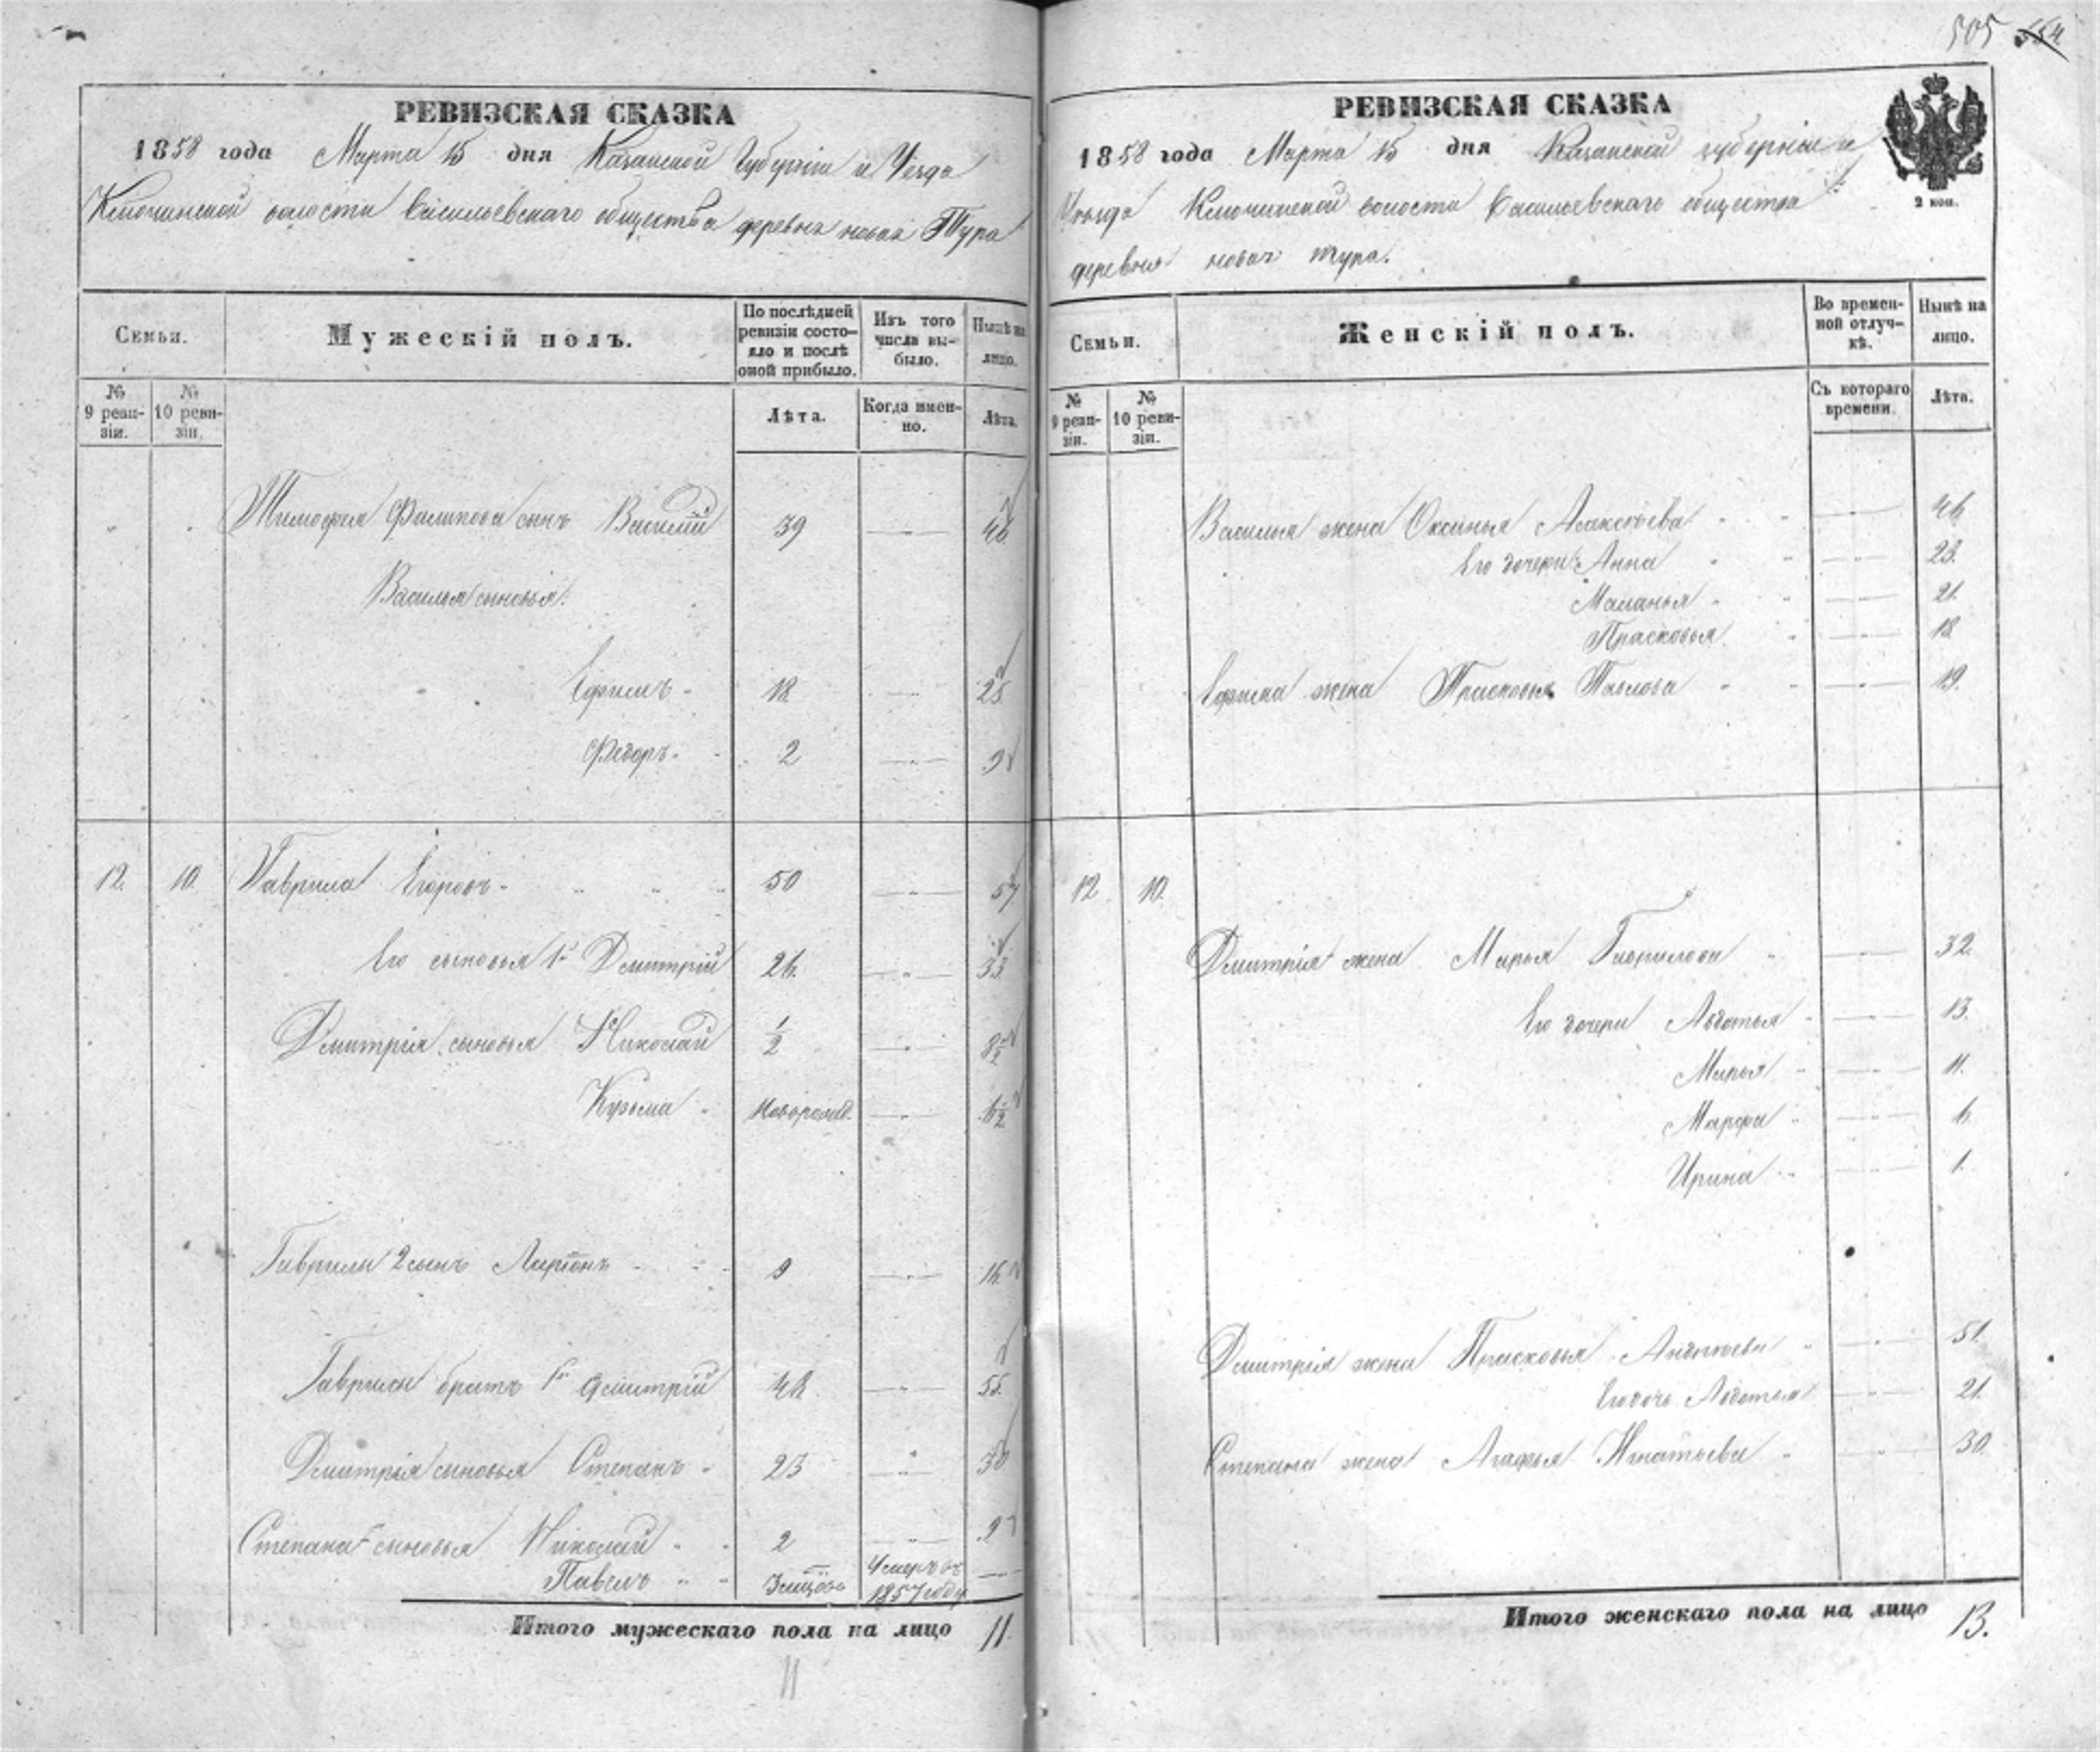 505 554
РЕВИЗСКАЯ СКАЗКА
1858 года Марта 15 дня Казанской Губернiи и Уезда
Ключинской волости Васильевскаго общества деревня новая Тура
Семьи.
Мужескiй полъ.
По послѣдней ревизiи состо-
яло и послѣ
оной прибыло.
Изъ того
числа вы-
было.
Нынѣ на
лицо.
№
9 реви-
зiи.
№
10 реви-
зiи.
Лѣта.
Когда имен-
но.
Лѣта.
Тимофея Филипова сынъ Василiй 39 46
Василья сыновья.
Ефимъ 18 25
Федоръ 2 9
12. 10. Гаврила Егоровъ 50 57
Его сыновья 1й Дмитрiй 26. 33
Дмитрiя сыновья Николай 1/2 8 1/2
Кузьма Новорожд. 6 1/2
Гаврилы 2 сынъ Ларiонъ 9 16.
Гаврилы братъ 1й Дмитрiй 48. 55.
Дмитрiя сыновья Степанъ 23 30
Степана сыновья Николай 2 9
Павелъ Умеръ въ
1857 году
Итого мужескаго пола на лицо 11.
11
РЕВИЗСКАЯ СКАЗКА
1858 года Марта 15 дня Казанской губернiи и
Уезда Ключинской волости Васильевскаго общества
деревня новая тура.
2 коп.
Семьи.
Женскiй полъ.
Во времен-
ной отлуч-
кѣ.
Нынѣ на
лицо.
№
9 реви-
зiи.
№
10 реви-
зiи.
Съ котораго
времени.
Лѣта.
Василья жена Оксинья Алексѣева 46
Его дочери Анна 23.
Маланья 21.
Прасковья 18.
Ефима жена Прасковья Павлова 19.
12 10.
Дмитрiя жена Марья Гаврилова 32.
Его дочери Авдотья 13.
Марья 11.
Марфа 6.
Ирина 1.
Дмитрiя жена Прасковья 51.
Его дочь Авдотья 21.
Степана жена Агафья Игнатьева 30.
Итого женскаго пола на лицо 13.